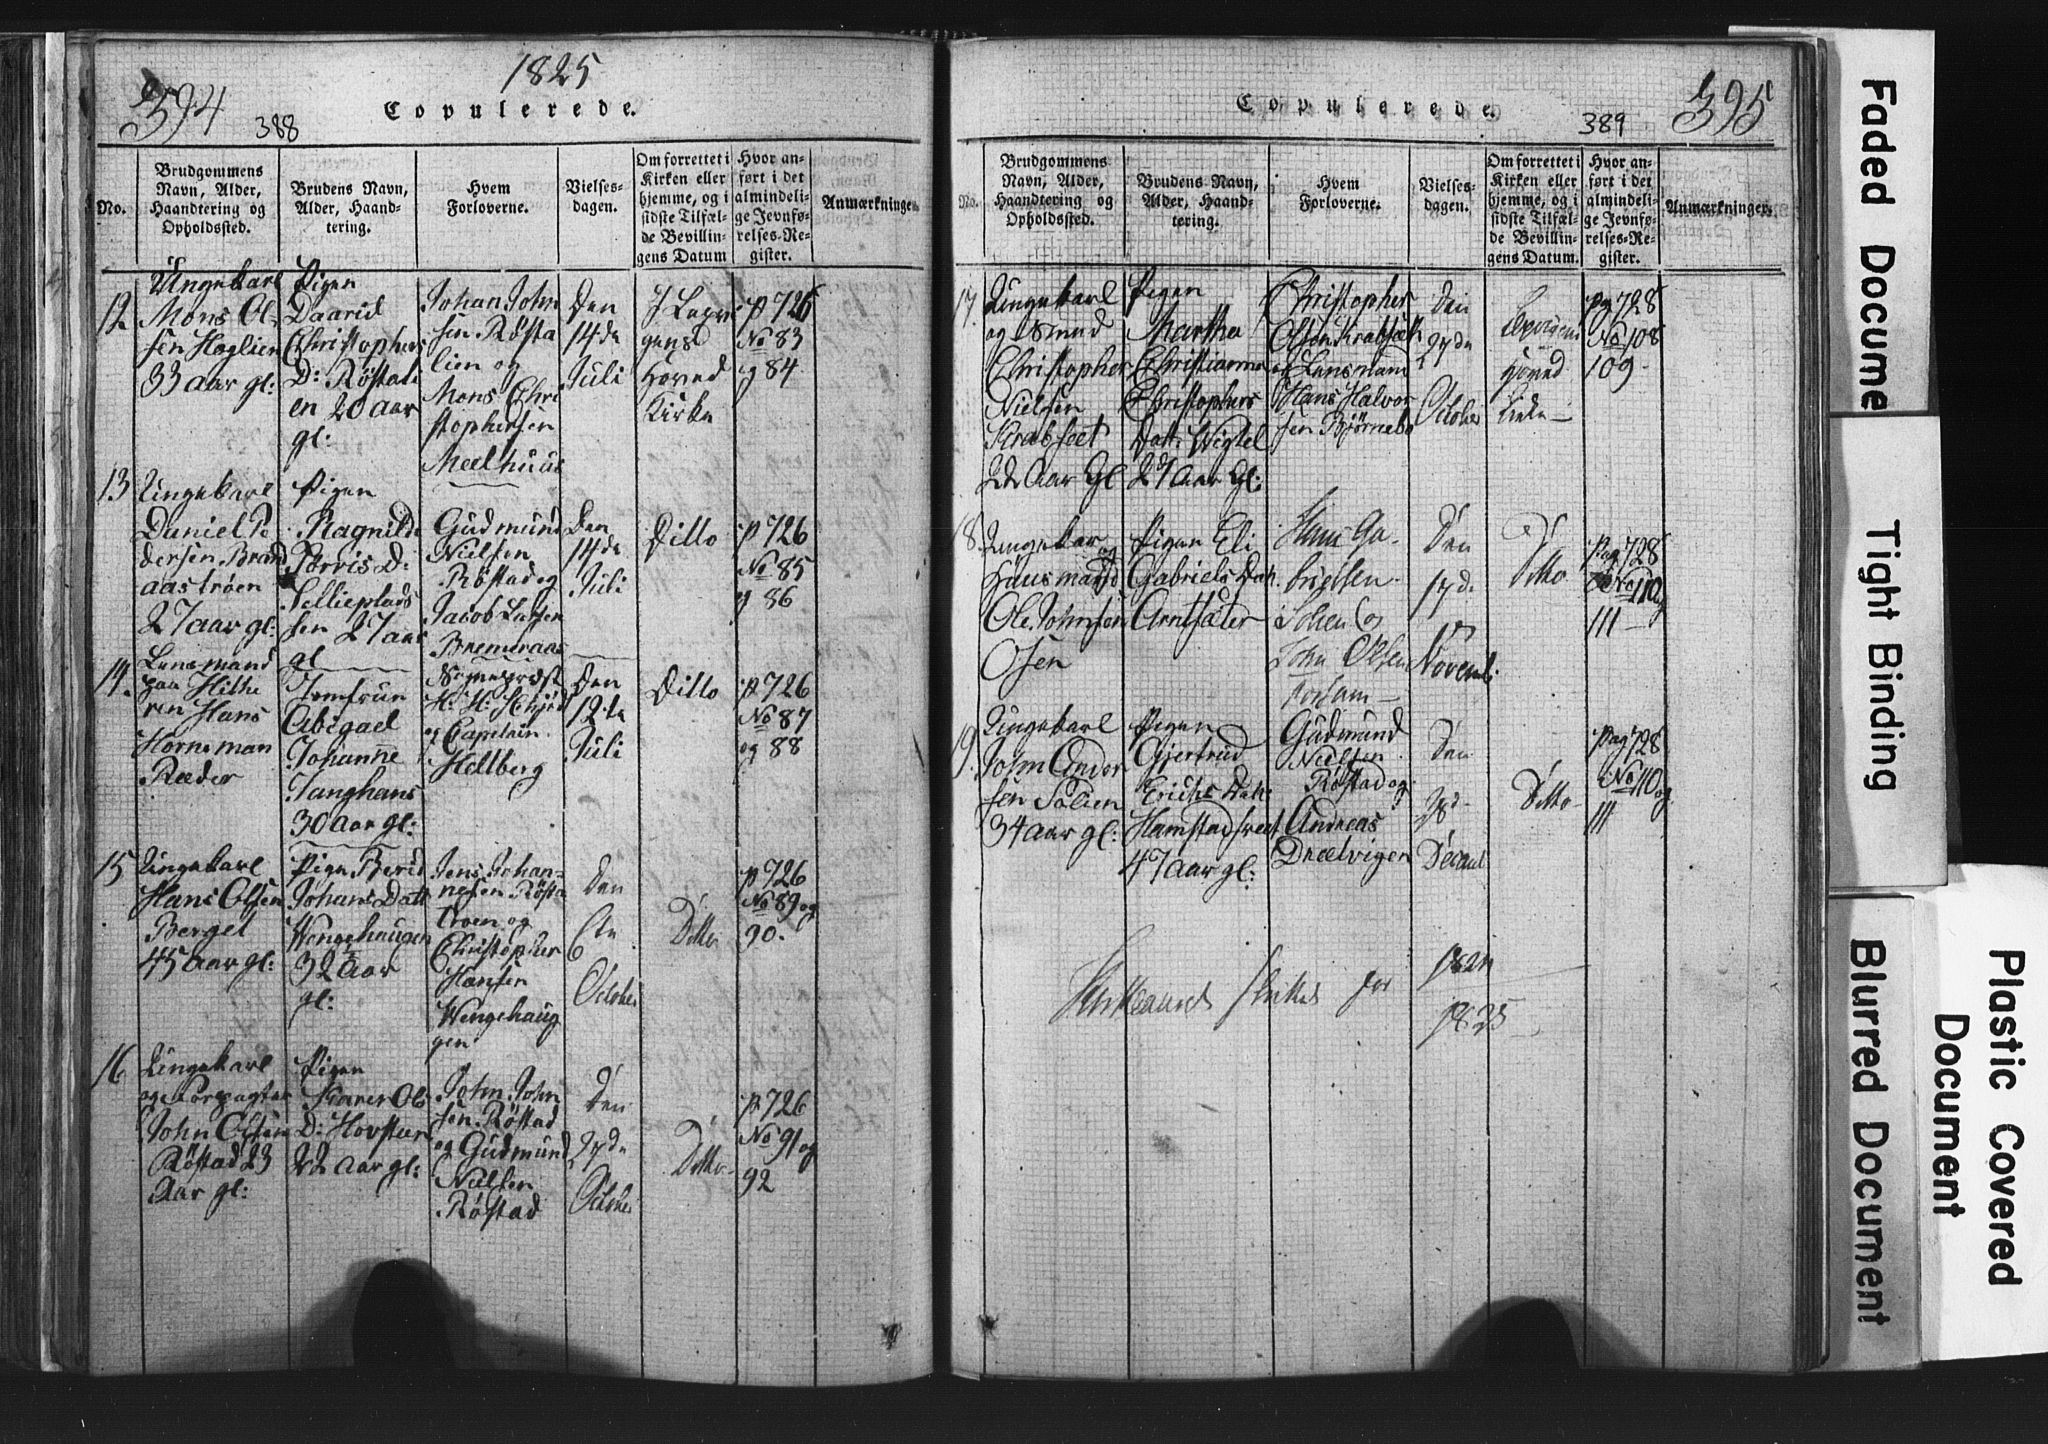 394
388
1825
Copulerede.
No.
Brudgommens
Navn, Alder,
Haandtering og
Opholdssted.
Brudens Navn,
Alder, Haand-
tering.
Hvem
Forloverne.
Vielses-
dagen.
Om forrettet i
Kirken eller
hjemme, og i
sidste Tilfæl-
de Bevillin-
gens Datum
Hvor an-
ført i det
almindeli-
ge Jevnfø-
relses-Re-
gister.
Anmærkninger.
12.
Ungekarl
Mons Ol-
sen Hoglien
33 aar gl:
Pigen
Daarid
Christophers
D: Röstali
en 20 aar
gl:
Johan John
sen Rösta
lien og
Mons Chri
stophersen
Meelhuus
Den
14de
Juli
Hoved
Kirke
p 726
No 83
og 84
13
Ungekarl
Daniel Pe
dersen Brand
aastrøen
27 aar gl:
Pigen
Ragnild
Torris D:
27 aar
gl
Gudmund
Nielsen
Röstad og
Jacob Larsen
Bremeraas
Den
14de
Juli
Ditto
p 726
No 85
og 86
14.
Lensmand
paa Hitte
ren Hans
Horneman
Reeder
Jomfrue
Abigael
Johanne
Tanghans
30 aar gl:
Sognepræst
H: H: Schjöd
og Capitain
Hellberg
Den
12te
Juli
Ditto
p 726
No 87
og 88
15
Ungekarl
Hans Olsen
Berget
45 aar gl:
Pige Berid
Johans Datt
Wingehaugen
32 aar
gl:
Jens Johan-
nesen Rösta
troen og
Christopher
Hansen
Wingehaug
gen
Den
6te
October
Ditto
p 726
No 89 og
90.
16
Ungekarl
og Forpagter
John Olsen
Röstad 23
Aar gl:
Pigen
Karen Ols
D: Hovsteen
22 aar gl:
John John
sen Röstad
og Gudmund
Nielsen
Röstad
Den
27de
October
Ditto
p 726
No 91 og
92
Copulerede.
389
395
No.
Brudgommens
Navn, Alder,
Haandtering og
Opholdssted.
Brudens Navn,
Alder, Haand-
tering.
Hvem
Forloverne.
Vielses-
dagen.
Om forrettet i
Kirken eller
hjemme, og i
sidste Tilfæl-
de Bevillin-
gens Datum.
Hvor an-
ført i det
almindeli-
ge Jevnfø-
relses-Re-
gister.
Anmærkninger.
17.
Ungekarl
og Smed
Christopher
Nielsen
Krabseet
22 Aar Gl
Pigen
Martha
Christianna
Christophers
Datt: Wigtel
27 Aar Gl:
Christopher
Olsen Krabsæt
og Lensmann
Hans Halvor
sen Björnebo
Den
27de
October
Hoved
Kirke
pag 728
No 108
109
18.
Ungekar og
Huusmand
Ole Johnsen
Osen
Pigen Eli
Gabriels Dat.
Arntsæter
Hans Ga-
brielsen
Solien og
John Olsen
Den
17de
Novemb:
Ditto
Pag 728
No 110 og
111
19.
Ungekarl
John Ander
sen Solien
34 aar gl:
Pigen
Gjertrud
Erichs Dat:
Hamstad
47 aar gl:
Gudmund
Nielsen
Röstad og
Andreas
Dreelvigen
Den
28de
Decemb
Ditto
Pag 728
No 110 og
111
for
1825
Faded Docume
Tight Binding
Plastic Covered
Document
Blurred Document